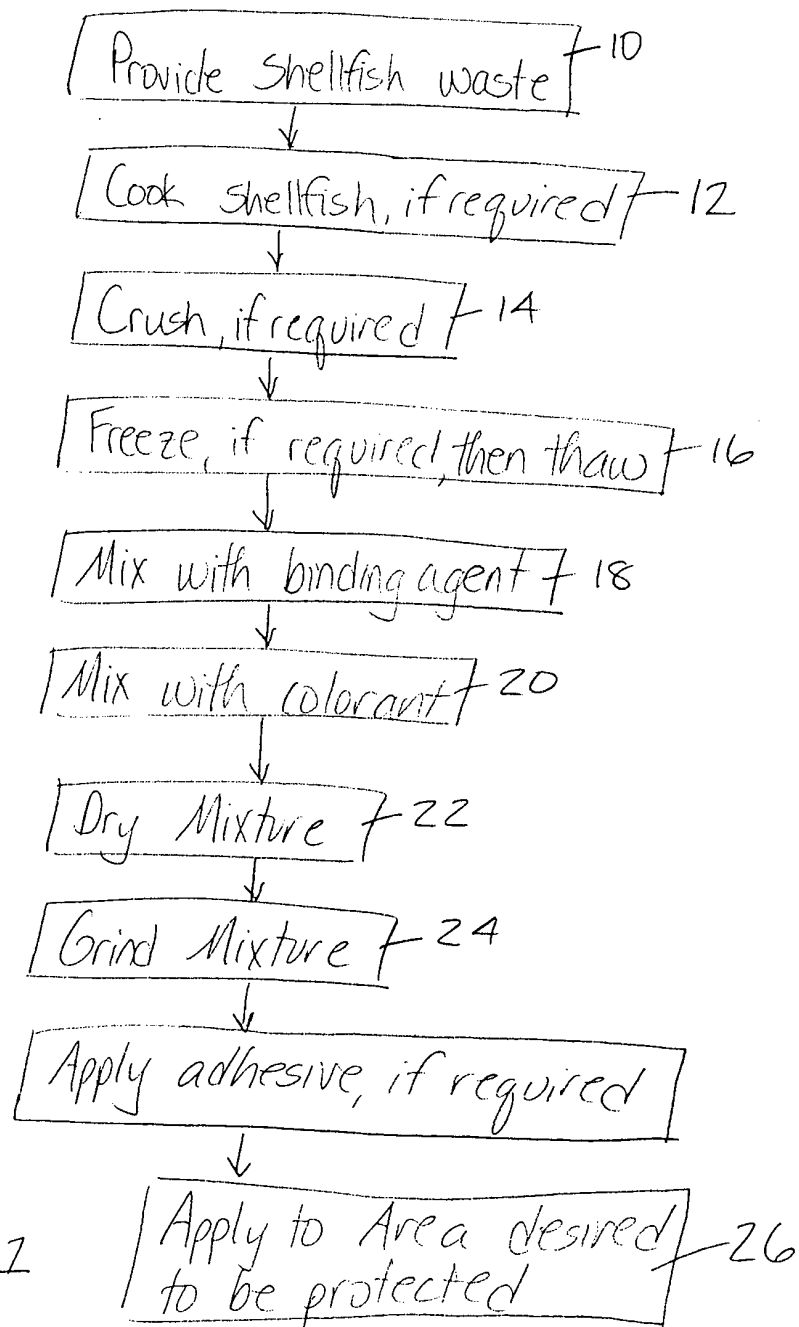 Provide shellfish waste 10
Cook shellfish, if required 12
Crush, if required 14
Freeze, if required, then thaw 16
Mix with binding agent 18
Mix with colorant 20
Dry Mixture 22
Grind Mixture 24
Apply adhesive, if required
Apply to Area desired 26
to be protected
1